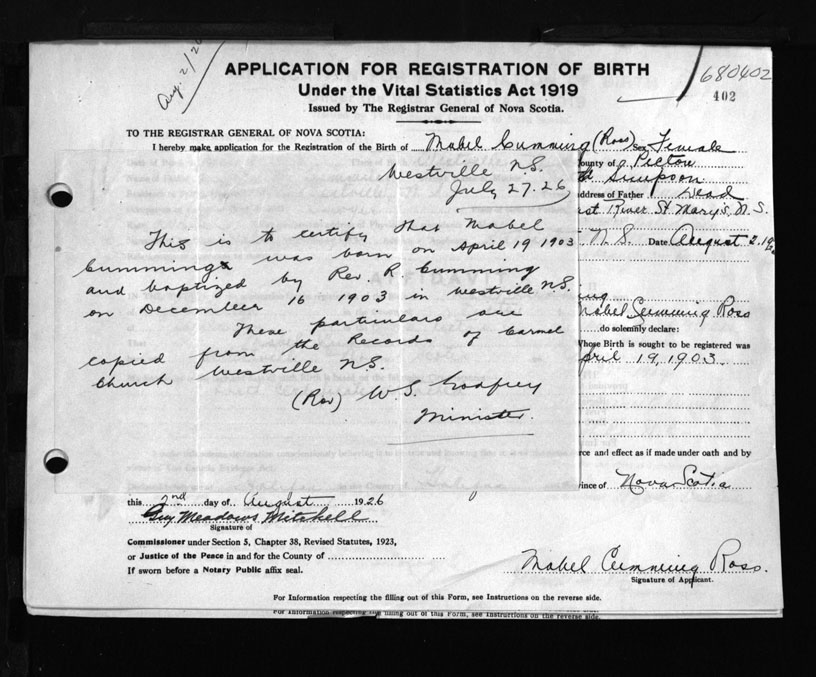 Aug. 2/26
680402
402
APPLICATION FOR REGISTRATION OF BIRTH
Under the Vital Statistics Act 1919
Issued by The Registrar General of Nova Scotia.
TO THE REGISTRAR GENERAL OF NOVA SCOTIA:
I hereby make application for the Registration of the Birth of Mabel Cumming (Ross) Sex Female
ounty of Pictou
Simpson
address of Father Dead
st River St Mary's, N. S.
N. S. Date August 2. 19
Westville N.S.
July 27. 26
This is to certify that Mabel
Cumming was born on April 19 1903
and baptized by Rev R. Cumming
on December 16 1903 in Westville N.S.
These particulars are
copied from the Records of Carmel
Church Westville N.S.
(Rev) W. S. Godfrey
Minister.
ing
Mabel Cumming Ross
do solemnly declare:
Whose Birth is sought to be registered was
pril 19, 1903.
rce and effect as if made under oath and by
vince of Nova Scotia
this 2nd day of August 1926
Guy Meadows Mitchell
Signature of
Commissioner under Section 5, Chapter 38, Revised Statutes, 1923,
or Justice of the Peace in and for the County of
If sworn before a Notary Public affix seal.
Mabel Cumming Ross.
Signature of Applicant.
For Information respecting the filling out of this Form, see Instructions on the reverse side.
For Information respecting the filling out of this Form, see Instructions on the reverse side.